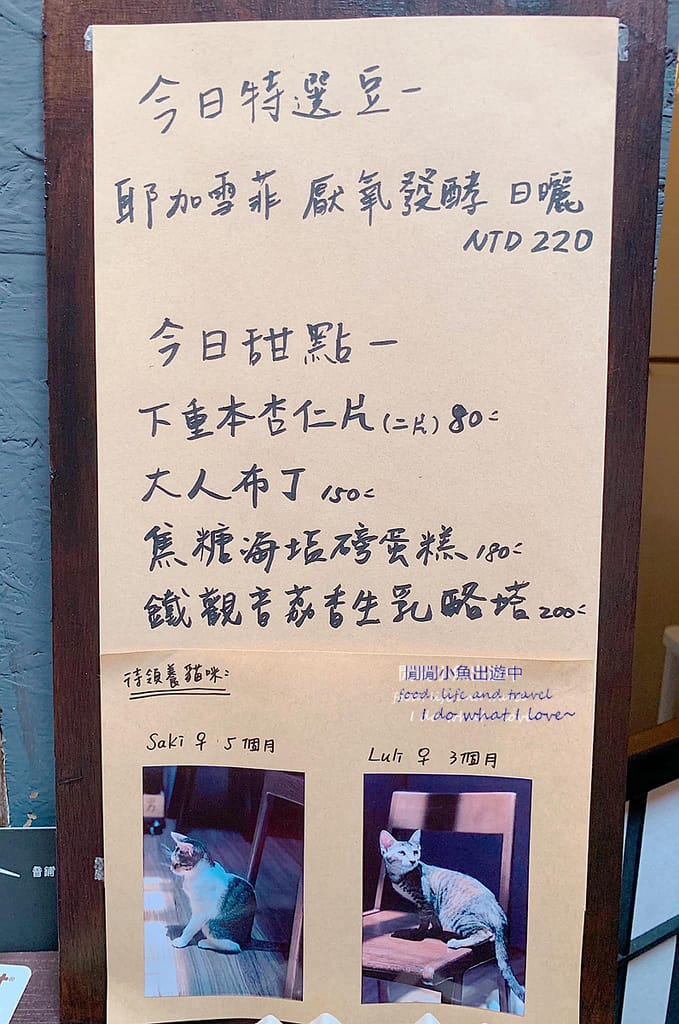 今日特選豆－
耶加雪菲 厭氧發酵 日曬
NTD 220
今日甜點－
下重本杏仁片(二片) 80.-
大人布丁 150.-
焦糖海塩磅蛋糕 180.-
鐵觀音荔香生乳酪塔 200.-
待領養貓咪：
閒閒小魚出遊中
food, life and travel
I do what I love~
Saki ♀ 5個月
Luli ♀ 3個月